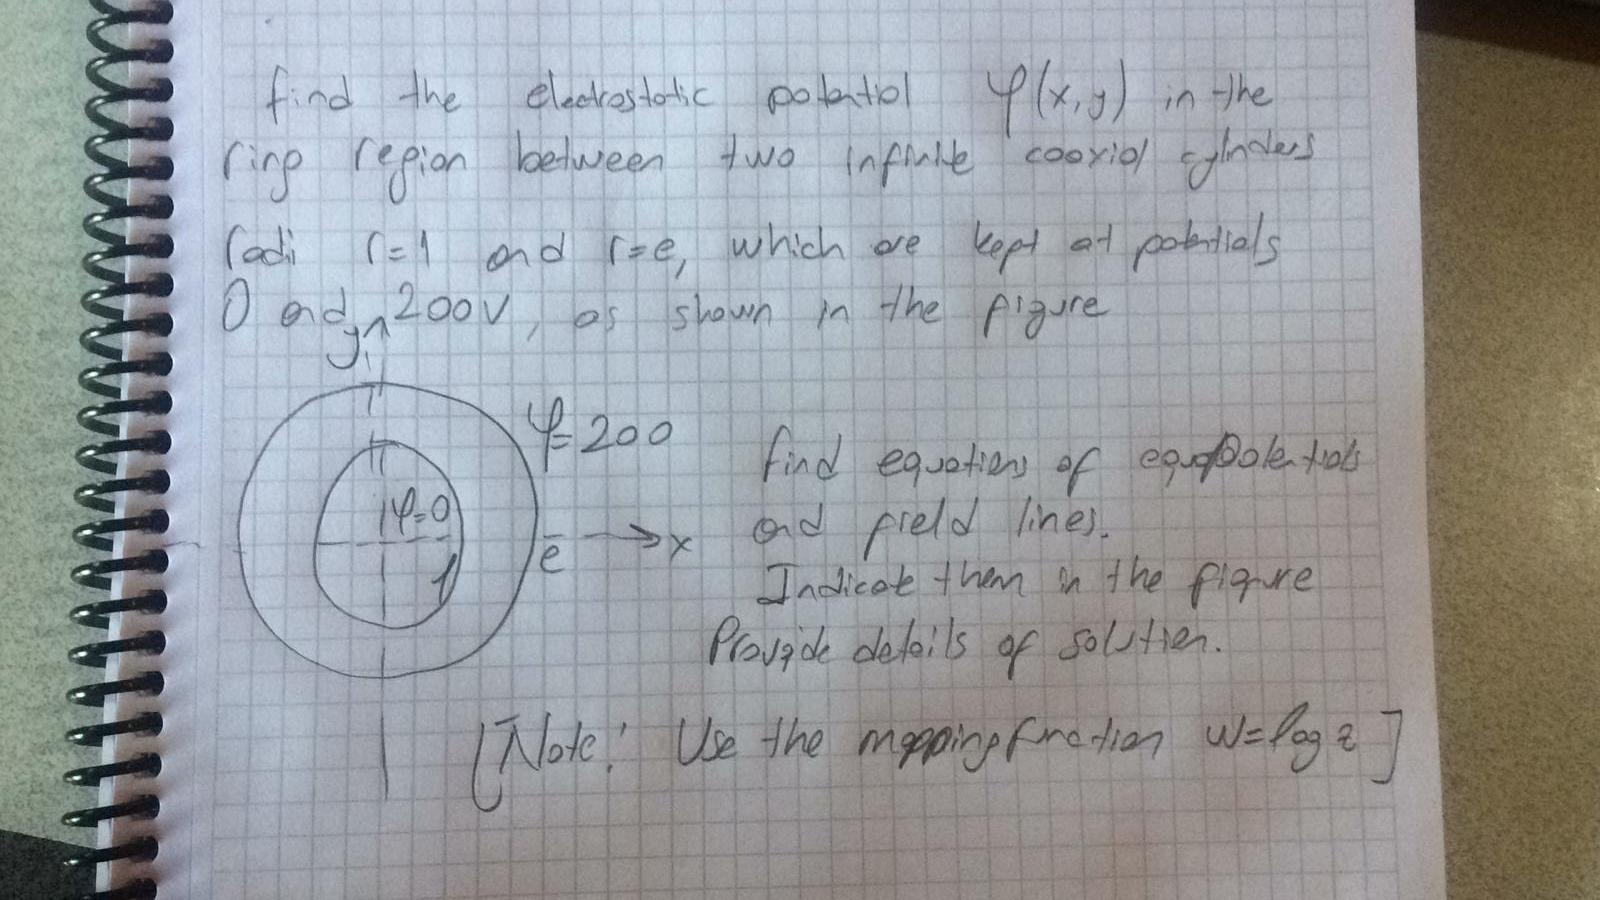 find the electrostatic potential φ(x,y) in the
ring region between two infinite coaxial cylinders
radii r=1 and r=e, which are kept at potentials
0 and 200V, as shown in the figure
y
φ=200
find equations of equipotentials
φ=0
and field lines.
1
e
x
Indicate them in the figure
Provide details of solution.
[Note: Use the mapping function w=log z]